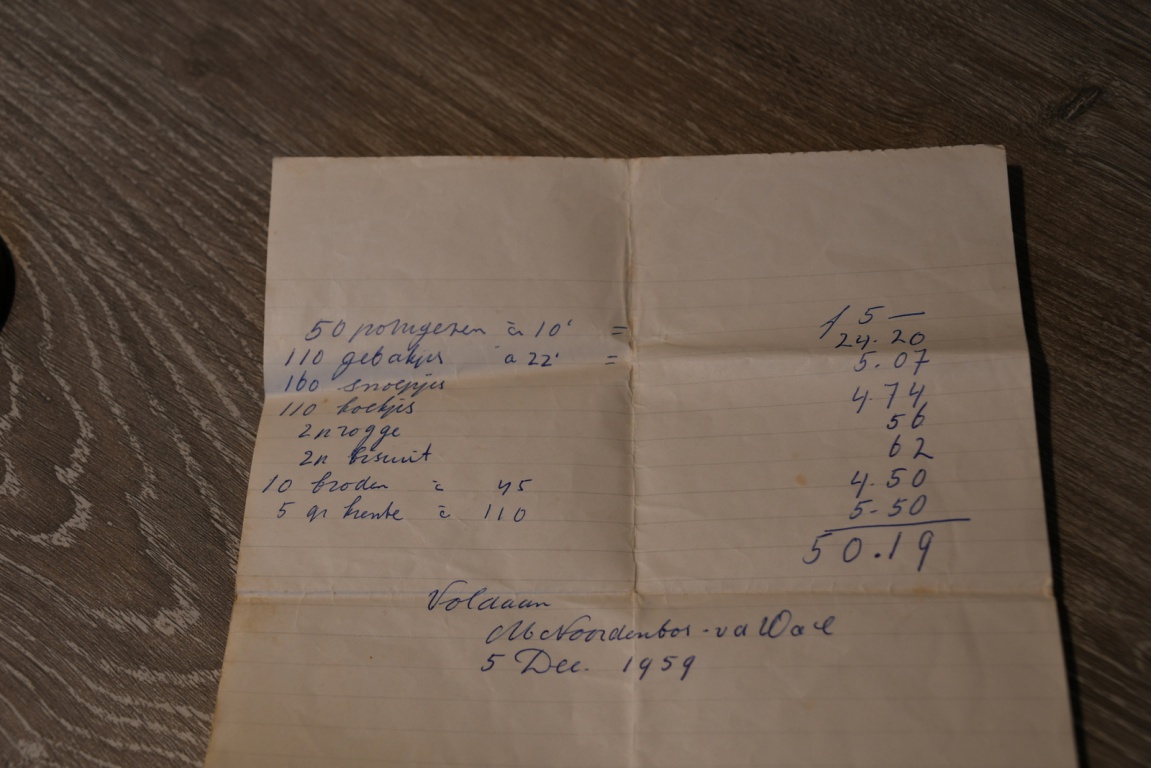 50 potugezen à 10' = / 5 —
110 gebakjes à 22' = 24.20
160 snoepjes 5.07
110 koekjes 4.74
2n rogge 56
2n bisuit 62
10 broden à 45 4.50
5 gr krente à 110 5.50
50.19
Voldaan
M Noordenbos - vd Wal
5 Dec. 1959